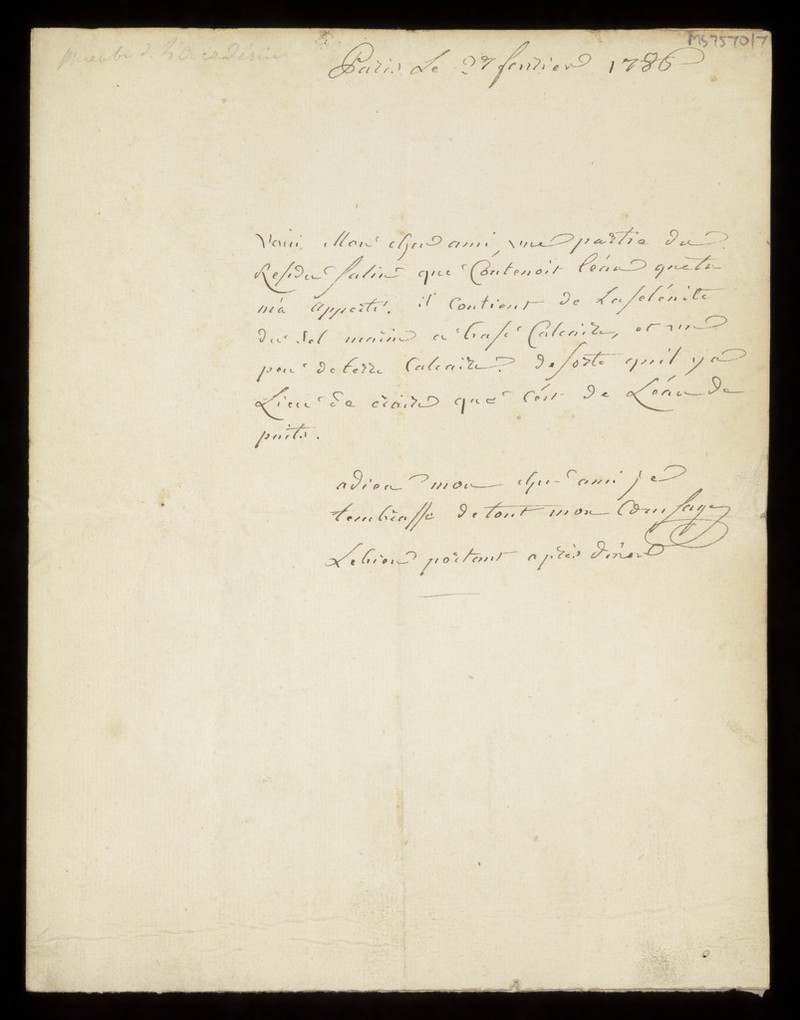 MS7570/7
Membre de l'Academie
Paris Le 27 fevrier 1786
Voici Mon cher ami, une partie du
Residu salin que Contenoit l'eau que tu
m'a apporté. il Contient de La selénite
du sel marin a base Calcaire, et un
peu de terre Calcaire. de sorte qu'il y a
Lieu de croire que C'est de L'eau de
puits.
adieu mon cher ami je
t'embrasse de tout mon
Le bien portant après diner